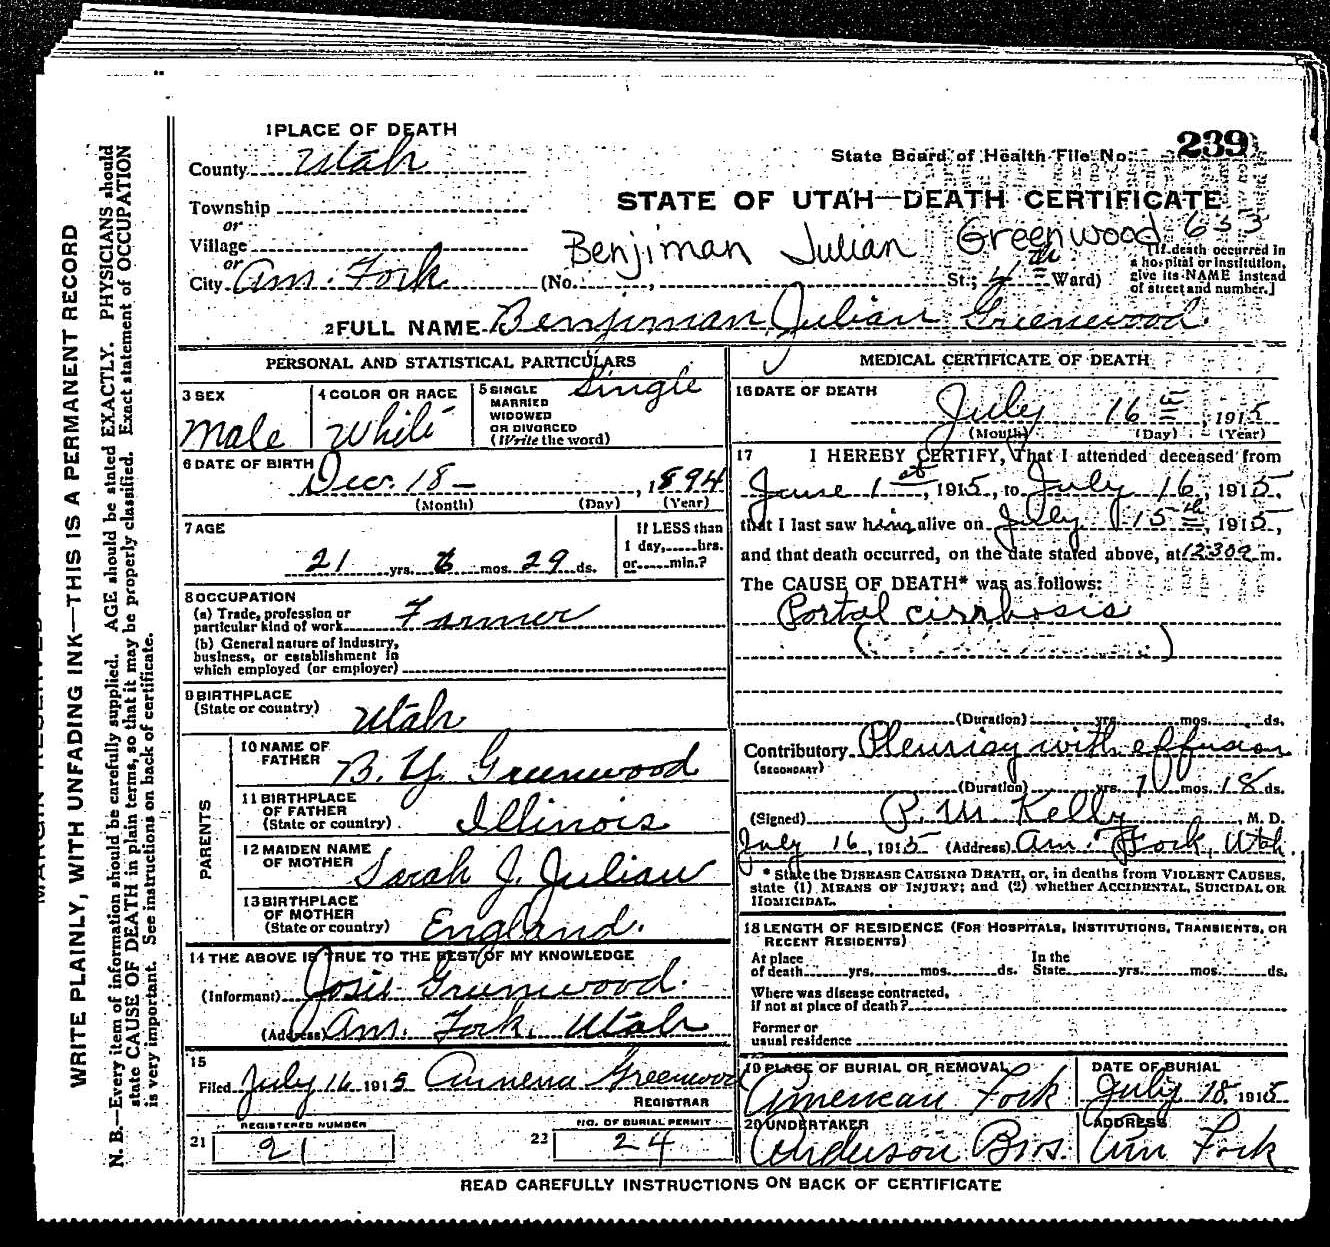 1 PLACE OF DEATH
County Utah
State Board of Health File No. 239
Township
STATE OF UTAH—DEATH CERTIFICATE
or
Village
Benjiman Julian Greenwood 653
or
City Am. Fork (No. , St.; 4th Ward)
[If death occurred in
a hospital or institution,
give its NAME instead
of street and number.]
2 FULL NAME Benjiman Julian Greenwood
PERSONAL AND STATISTICAL PARTICULARS
3 SEX
Male
4 COLOR OR RACE
White
5 SINGLE
MARRIED
WIDOWED
OR DIVORCED
(Write the word)
Single
6 DATE OF BIRTH
Dec. 18 — , 1894
(Month) (Day) (Year)
7 AGE
21 yrs. mos. 29 ds.
If LESS than
1 day,.....hrs.
or.....min.?
8 OCCUPATION
(a) Trade, profession or
particular kind of work Farmer
(b) General nature of industry,
business, or establishment in
which employed (or employer)
9 BIRTHPLACE
(State or country)
Utah
PARENTS
10 NAME OF
FATHER B. Y. Greenwood
11 BIRTHPLACE
OF FATHER
(State or country) Illinois
12 MAIDEN NAME
OF MOTHER Sarah J. Julian
13 BIRTHPLACE
OF MOTHER
(State or country) England.
14 THE ABOVE IS TRUE TO THE BEST OF MY KNOWLEDGE
(Informant) Josie Greenwood.
(Address) Am. Fork, Utah
15
Filed July 16 1915 Greenwood
REGISTRAR
REGISTERED NUMBER
21 21
NO. OF BURIAL PERMIT
22 24
MEDICAL CERTIFICATE OF DEATH
16 DATE OF DEATH
July 16th, 1915
(Month) (Day) (Year)
17 I HEREBY CERTIFY, That I attended deceased from
June 1st, 1915, to July 16, 1915,
that I last saw him alive on July 15th, 1915,
and that death occurred, on the date stated above, at 12:30 a m.
The CAUSE OF DEATH* was as follows:
Portal cirrhosis
( )
(Duration) yrs. mos. ds.
Contributory Pleurisy with effusion
(SECONDARY)
(Duration) yrs. 1 mos. 18 ds.
(Signed) P. M. Kelly, M. D.
July 16, 1915 (Address) Am. Fork, Utah.
* State the DISEASE CAUSING DEATH, or, in deaths from VIOLENT CAUSES,
state (1) MEANS OF INJURY; and (2) whether ACCIDENTAL, SUICIDAL OR
HOMICIDAL.
18 LENGTH OF RESIDENCE (FOR HOSPITALS, INSTITUTIONS, TRANSIENTS, OR
RECENT RESIDENTS)
At place In the
of death yrs. mos. ds. State yrs. mos. ds.
Where was disease contracted,
if not at place of death?
Former or
usual residence
19 PLACE OF BURIAL OR REMOVAL
American Fork
DATE OF BURIAL
July 18, 1915
20 UNDERTAKER
Anderson Bros.
ADDRESS
Am. Fork
READ CAREFULLY INSTRUCTIONS ON BACK OF CERTIFICATE
WRITE PLAINLY, WITH UNFADING INK—THIS IS A PERMANENT RECORD
N. B.—Every item of information should be carefully supplied. AGE should be stated EXACTLY. PHYSICIANS should
state CAUSE OF DEATH in plain terms, so that it may be properly classified. Exact statement of OCCUPATION
is very important. See instructions on back of certificate.